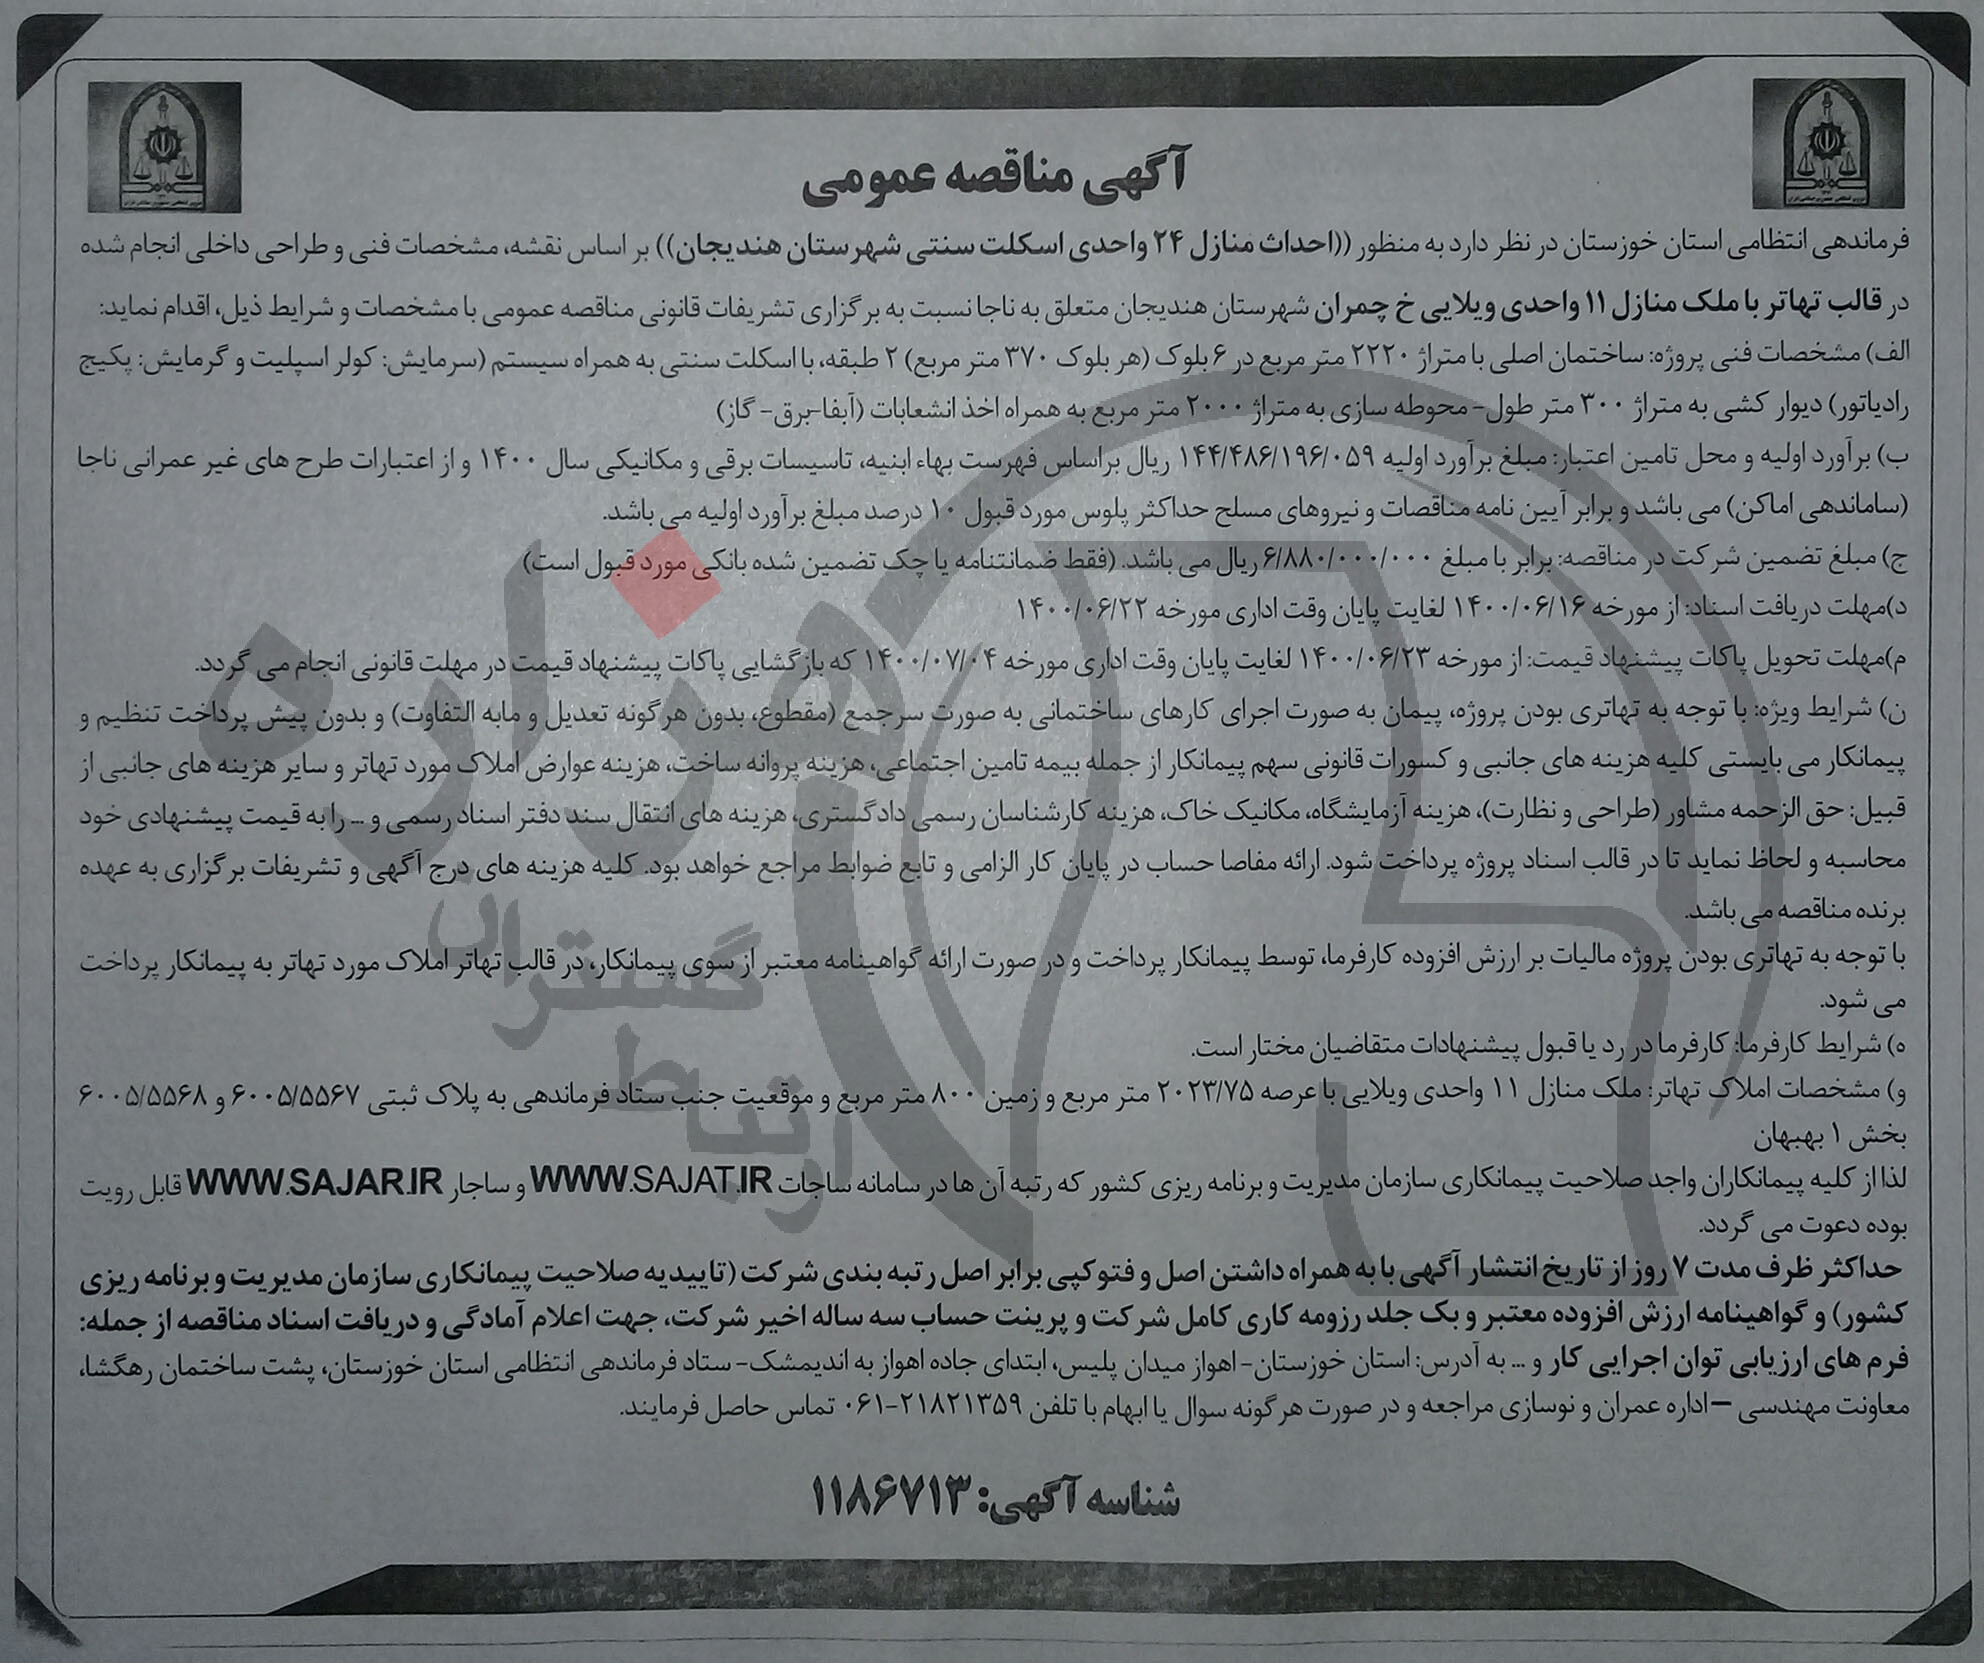 آگهی مناقصه عمومی
فرماندهی انتظامی استان خوزستان در نظر دارد به منظور ((احداث منازل ۲۴ واحدی اسکلت سنتی شهرستان هندیجان)) بر اساس نقشه، مشخصات فنی و طراحی داخلی انجام شده
در قالب تهاتر با ملک منازل ۱۱ واحدی ویلایی خ چمران شهرستان هندیجان متعلق به ناجا نسبت به برگزاری تشریفات قانونی مناقصه عمومی با مشخصات و شرایط ذیل، اقدام نماید:
الف) مشخصات فنی پروژه: ساختمان اصلی با متراژ ۲۲۲۰ متر مربع در ۶ بلوک (هر بلوک ۳۷۰ متر مربع) ۲ طبقه، با اسکلت سنتی به همراه سیستم (سرمایش: کولر اسپلیت و گرمایش: پکیج
رادیاتور) دیوار کشی به متراژ ۳۰۰ متر طول- محوطه سازی به متراژ ۲۰۰۰ متر مربع به همراه اخذ انشعابات (آبفا-برق- گاز)
ب) برآورد اولیه و محل تامین اعتبار: مبلغ برآورد اولیه ۱۴۴/۴۸۶/۱۹۶/۰۵۹ ریال براساس فهرست بهاء ابنیه، تاسیسات برقی و مکانیکی سال ۱۴۰۰ و از اعتبارات طرح های غیر عمرانی ناجا
(ساماندهی اماکن) می باشد و برابر آیین نامه مناقصات و نیروهای مسلح حداکثر پلوس مورد قبول ۱۰ درصد مبلغ برآورد اولیه می باشد.
ج) مبلغ تضمین شرکت در مناقصه: برابر با مبلغ ۶/۸۸۰/۰۰۰/۰۰۰ ریال می باشد. (فقط ضمانتنامه یا چک تضمین شده بانکی مورد قبول است)
د)مهلت دریافت اسناد: از مورخه ۱۴۰۰/۰۶/۱۶ لغایت پایان وقت اداری مورخه ۱۴۰۰/۰۶/۲۲
م)مهلت تحویل پاکات پیشنهاد قیمت: از مورخه ۱۴۰۰/۰۶/۲۳ لغایت پایان وقت اداری مورخه ۱۴۰۰/۰۷/۰۴ که بازگشایی پاکات پیشنهاد قیمت در مهلت قانونی انجام می گردد.
ن) شرایط ویژه: با توجه به تهاتری بودن پروژه، پیمان به صورت اجرای کارهای ساختمانی به صورت سرجمع (مقطوع، بدون هرگونه تعدیل و مابه التفاوت) و بدون پیش پرداخت تنظیم و
پیمانکار می بایستی کلیه هزینه های جانبی و کسورات قانونی سهم پیمانکار از جمله بیمه تامین اجتماعی، هزینه پروانه ساخت، هزینه عوارض املاک مورد تهاتر و سایر هزینه های جانبی از
قبیل: حق الزحمه مشاور (طراحی و نظارت)، هزینه آزمایشگاه، مکانیک خاک، هزینه کارشناسان رسمی دادگستری، هزینه های انتقال سند دفتر اسناد رسمی و ... را به قیمت پیشنهادی خود
محاسبه و لحاظ نماید تا در قالب اسناد پروژه پرداخت شود. ارائه مفاصا حساب در پایان کار الزامی و تابع ضوابط مراجع خواهد بود. کلیه هزینه های درج آگهی و تشریفات برگزاری به عهده
برنده مناقصه می باشد.
با توجه به تهاتری بودن پروژه مالیات بر ارزش افزوده کارفرما، توسط پیمانکار پرداخت و در صورت ارائه گواهینامه معتبر از سوی پیمانکار، در قالب تهاتر املاک مورد تهاتر به پیمانکار پرداخت
می شود.
ه) شرایط کارفرما: کارفرما در رد یا قبول پیشنهادات متقاضیان مختار است.
و) مشخصات املاک تهاتر: ملک منازل ۱۱ واحدی ویلایی با عرصه ۲۰۲۳/۷۵ متر مربع و زمین ۸۰۰ متر مربع و موقعیت جنب ستاد فرماندهی به پلاک ثبتی ۶۰۰۵/۵۵۶۷ و ۶۰۰۵/۵۵۶۸
بخش ۱ بهبهان
لذا از کلیه پیمانکاران واجد صلاحیت پیمانکاری سازمان مدیریت و برنامه ریزی کشور که رتبه آن ها در سامانه ساجات WWW.SAJAT.IR و ساجار WWW.SAJAR.IR قابل رویت
بوده دعوت می گردد.
حداکثر ظرف مدت ۷ روز از تاریخ انتشار آگهی با به همراه داشتن اصل و فتوکپی برابر اصل رتبه بندی شرکت (تاییدیه صلاحیت پیمانکاری سازمان مدیریت و برنامه ریزی
کشور) و گواهینامه ارزش افزوده معتبر و یک جلد رزومه کاری کامل شرکت و پرینت حساب سه ساله اخیر شرکت، جهت اعلام آمادگی و دریافت اسناد مناقصه از جمله:
فرم های ارزیابی توان اجرایی کار و ... به آدرس: استان خوزستان- اهواز میدان پلیس، ابتدای جاده اهواز به اندیمشک- ستاد فرماندهی انتظامی استان خوزستان، پشت ساختمان رهگشا،
معاونت مهندسی – اداره عمران و نوسازی مراجعه و در صورت هرگونه سوال یا ابهام با تلفن ۲۱۸۲۱۳۵۹-۰۶۱ تماس حاصل فرمایند.
شناسه آگهی: ۱۱۸۶۷۱۳
هزاره
ارتباط
گستران